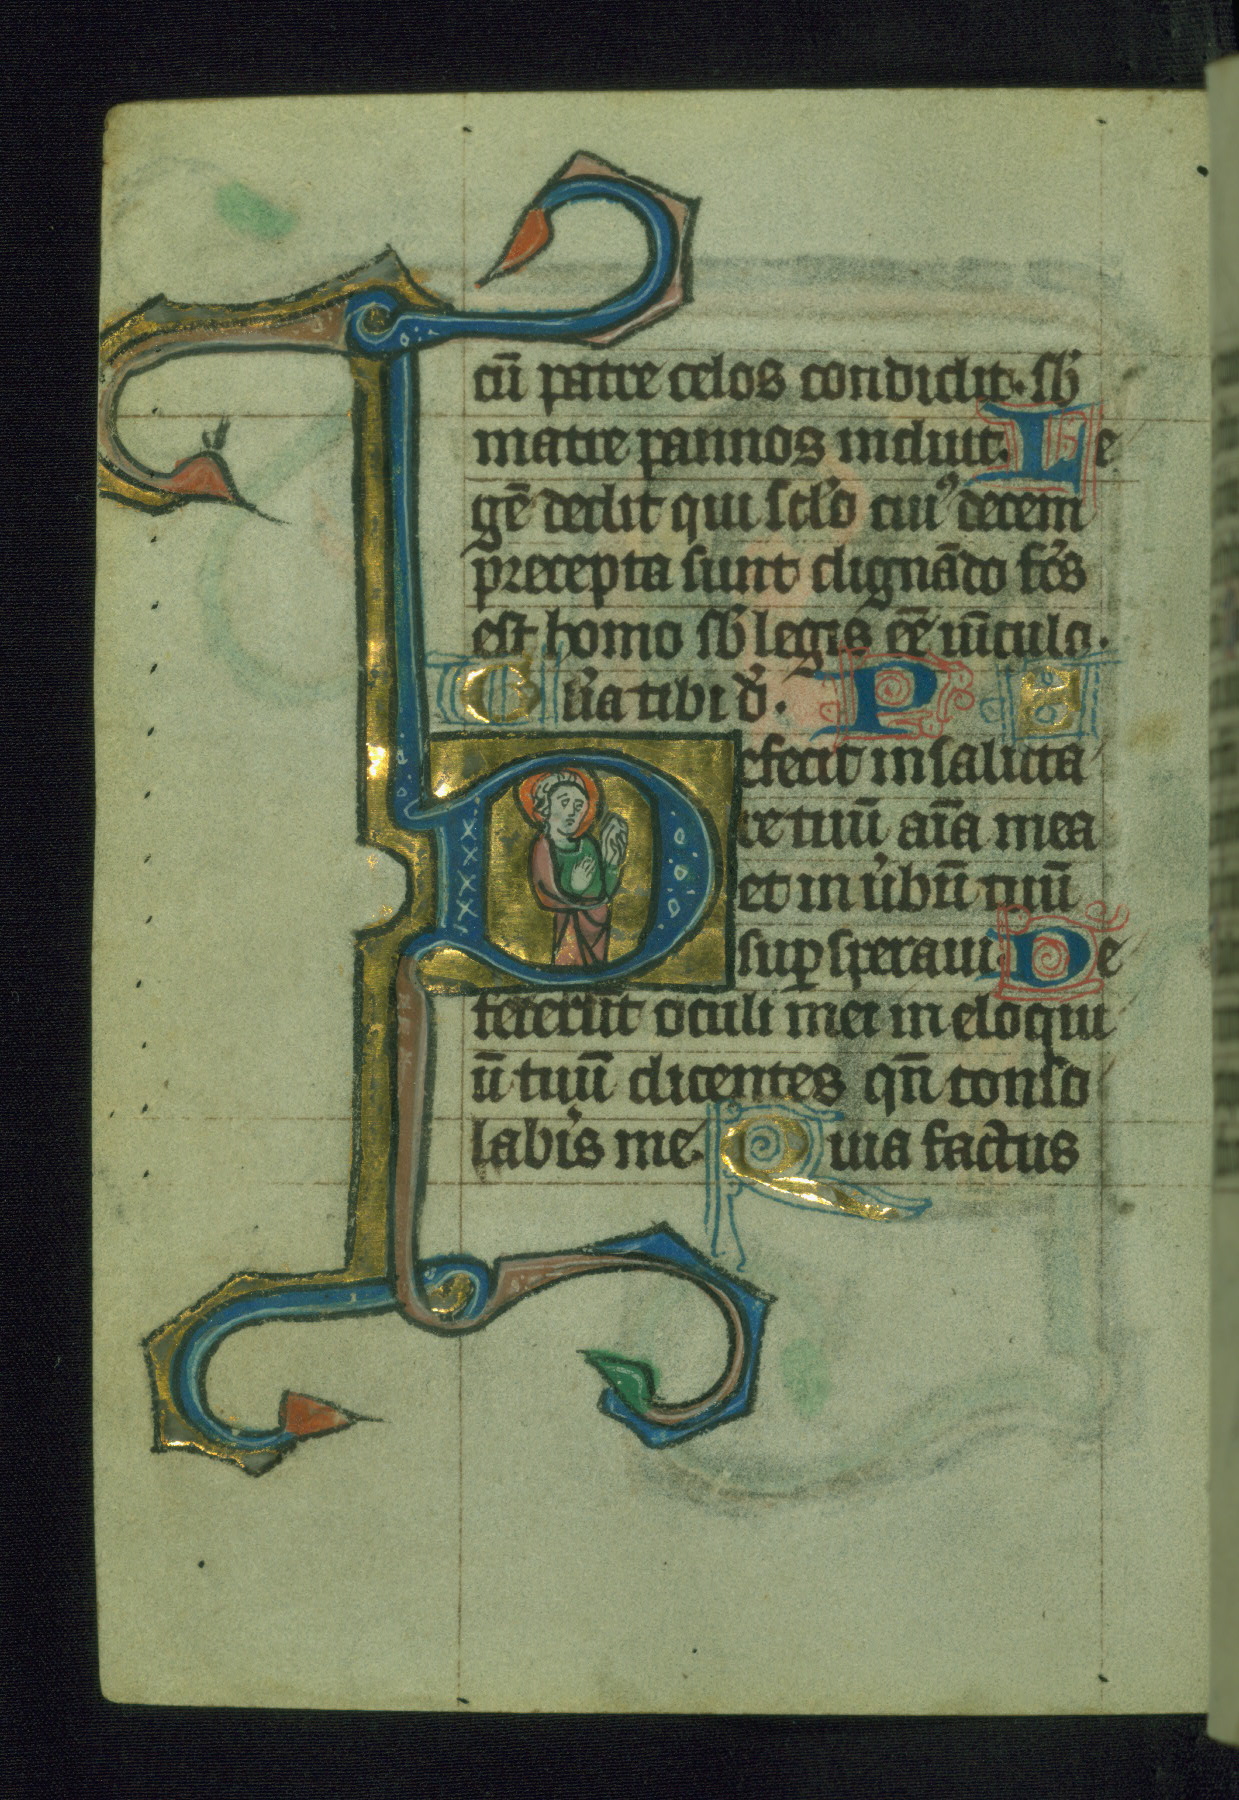 cū patre celos condidit. sb̄
matre pannos induit. Le
gē dedit qui sclo cui⁹ decem
precepta sunt dignādo fcs
est homo sb̄ legis eē uīculo.
Glīa tibi d̄. P
Defecit in saluta
re tuū aīa mea
et in ūbū tuū
sup speraui. De
fecerūt oculi mei in eloqui
ū tuū dicentes qn̄ conso
labis me. Quia factus